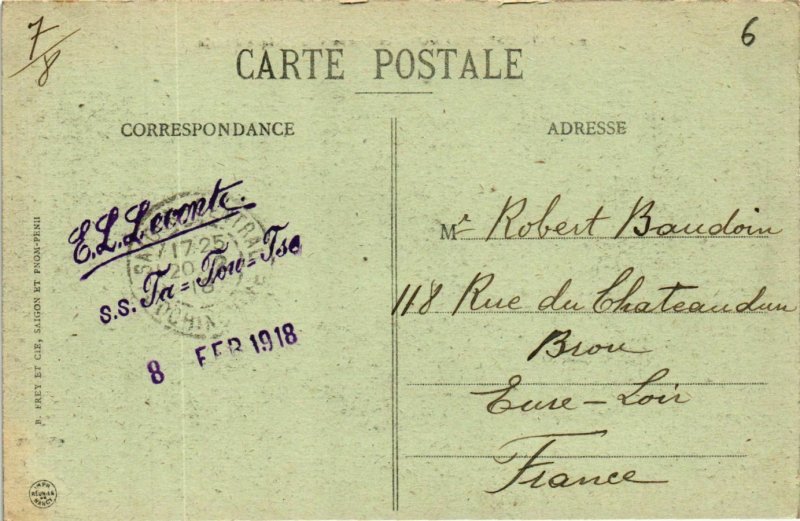 7/8
6
CARTE POSTALE
CORRESPONDANCE
ADRESSE
E. L. Leconte.
S.S. Ta=Tou=Tse
8 FEB 1918
17·25
20
Mr Robert Baudoin
118 Rue du Chateaudun
Brou
Eure-Loir
France
B. FREY ET CIE, SAIGON ET PNOM-PENH
IMPR
RÉUNIES
NANCY